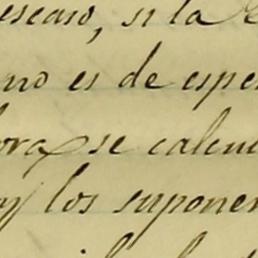 escaso, si la
no es de espe
ora se calcu
y los suponen